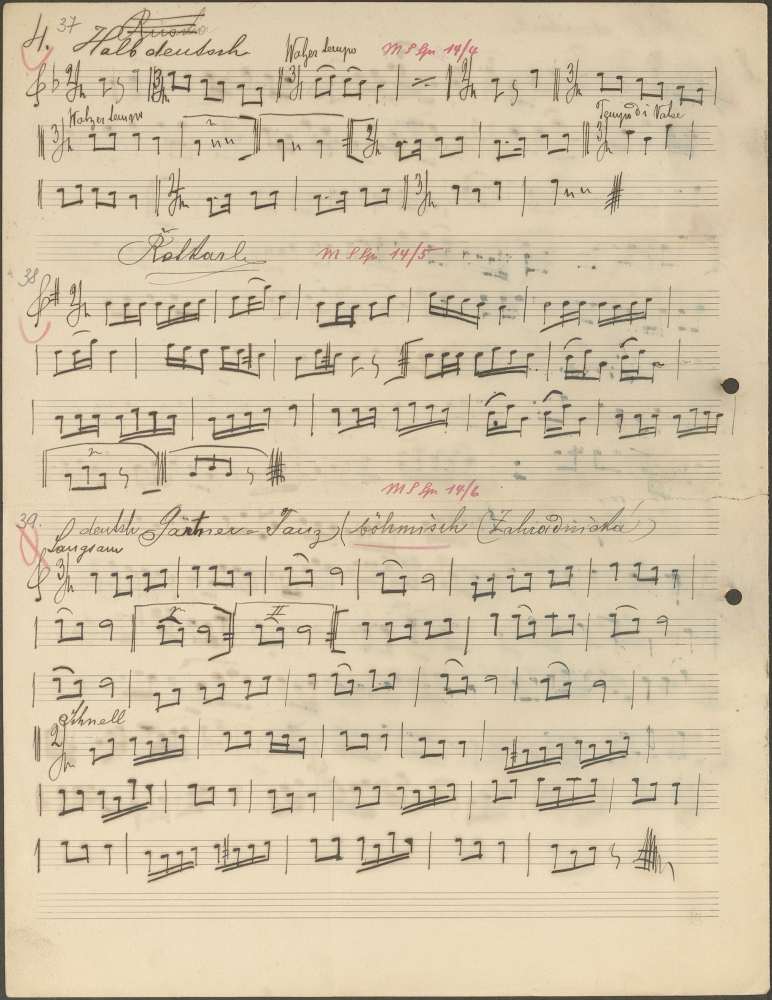 37
4. Halbdeutsch Walzer tempo M S Sp 14/4
Walzer tempo Tempo di Valse
M S Sp 14/5
38
M S Sp 14/6
39. deutsch Gärtner-Tanz (böhmisch (Zahradnická)
Langsam
I II
Schnell